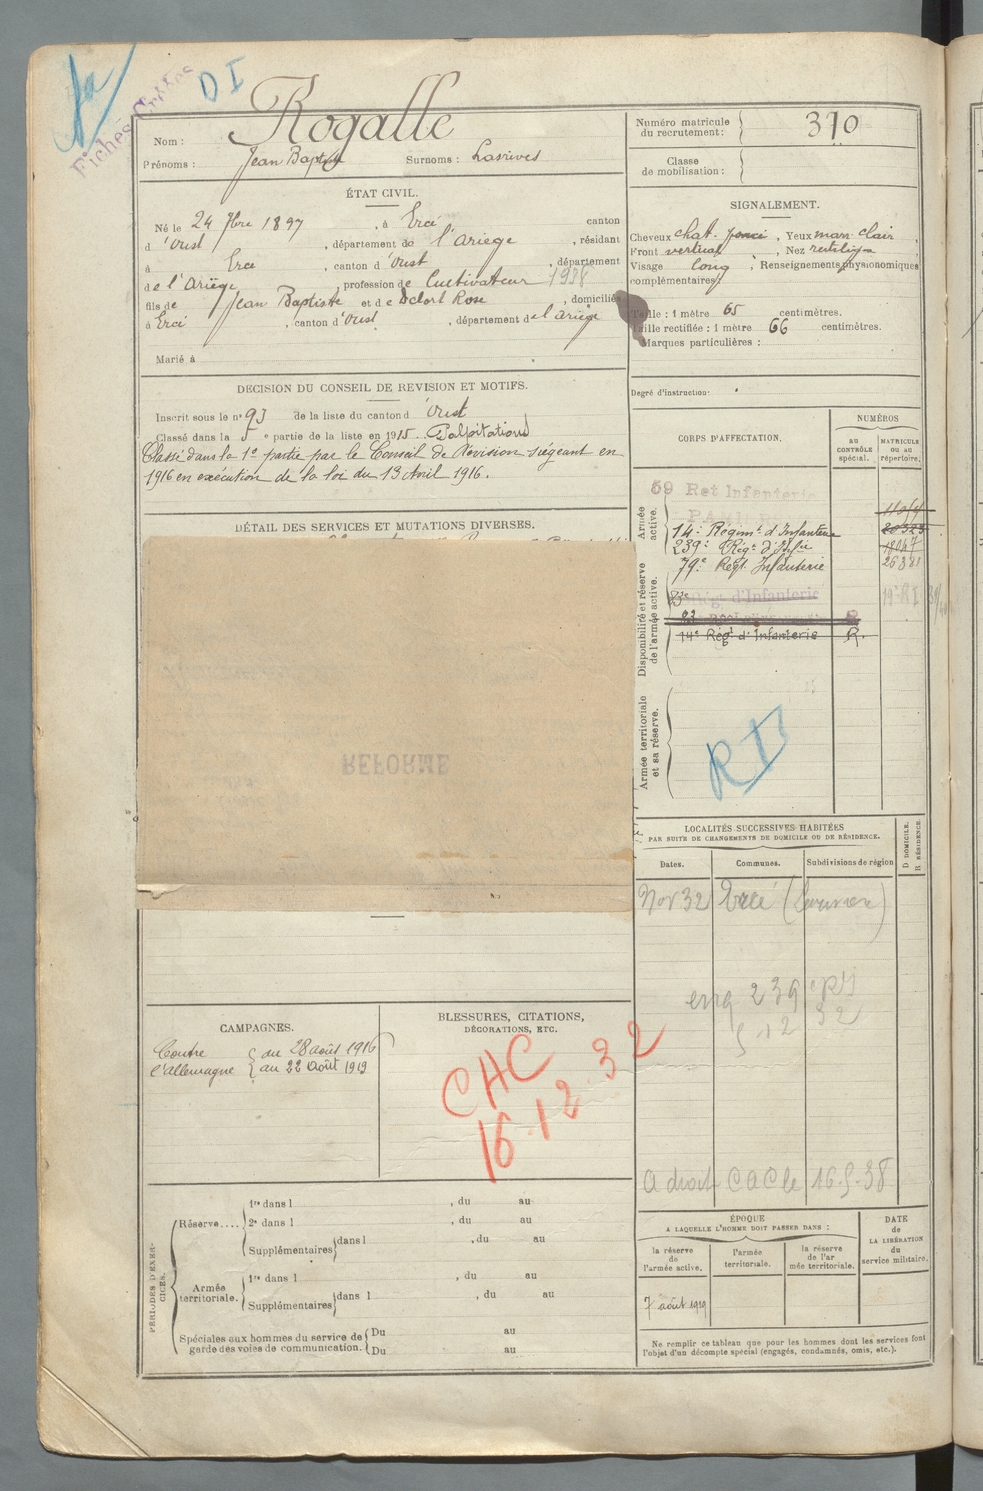 Fiches Croisées
D I
Nom : Rogalle
Prénoms : Jean Baptiste Surnoms : Lasrives
Numéro matricule du recrutement : 310
Classe de mobilisation :
ÉTAT CIVIL.
Né le 24 7bre 1897, à Ercé canton
d'Oust, département de l'Ariège, résidant
à Ercé, canton d'Oust, département
de l'Ariège, profession de Cultivateur 1938
fils de Jean Baptiste et de Delort Rose, domiciliés
à Ercé, canton d'Oust, département de l'Ariège
Marié à
SIGNALEMENT.
Cheveux chat. foncé, Yeux mar. clair,
Front vertical, Nez rectilign
Visage long, Renseignements physionomiques
complémentaires :
Taille : 1 mètre 65 centimètres.
Taille rectifiée : 1 mètre 66 centimètres.
Marques particulières :
Degré d'instruction :
DÉCISION DU CONSEIL DE REVISION ET MOTIFS.
Inscrit sous le n° 93 de la liste du canton d'Oust
Classé dans la 5e partie de la liste en 1915. Palpitations
Classé dans la 1e partie par le Conseil de Révision siégeant en
1916 en exécution de la loi du 13 Avril 1916.
DÉTAIL DES SERVICES ET MUTATIONS DIVERSES.
REFORME
CORPS D'AFFECTATION.
NUMÉROS
au CONTRÔLE spécial.
MATRICULE OU AU répertoire.
Armée active.
59 Rgt Infanterie
14e Régimt d'Infanterie 20323
239e Rég. d'Infie 18047
79e Régt Infanterie 26381
Disponibilité et réserve de l'armée active.
83e Régt d'Infanterie 19e RI
14e Régt d'Infanterie R.
Armée territoriale et sa réserve.
LOCALITÉS SUCCESSIVES HABITÉES
PAR SUITE DE CHANGEMENTS DE DOMICILE OU DE RÉSIDENCE.
Dates. Communes. Subdivisions de région
D DOMICILE. R RÉSIDENCE.
Nov 32 Ercé
enq 239 RI
5 12 32
a droit CAC le 16-5-38
CAMPAGNES.
Contre l'allemagne { du 28 août 1916
au 22 Août 1919
BLESSURES, CITATIONS,
DÉCORATIONS, ETC.
CAC
16.12.32
PÉRIODES D'EXERCICES.
Réserve.... 1re dans l , du au
2e dans l , du au
Supplémentaires dans l , du au
Armée territoriale. 1re dans l , du au
Supplémentaires dans l , du au
Spéciales aux hommes du service de garde des voies de communication. Du au
Du au
ÉPOQUE
A LAQUELLE L'HOMME DOIT PASSER DANS :
la réserve de l'armée active.
l'armée territoriale.
la réserve de l'armée territoriale.
DATE de LA LIBÉRATION du service militaire.
7 août 1919
Ne remplir ce tableau que pour les hommes dont les services font
l'objet d'un décompte spécial (engagés, condamnés, omis, etc.).